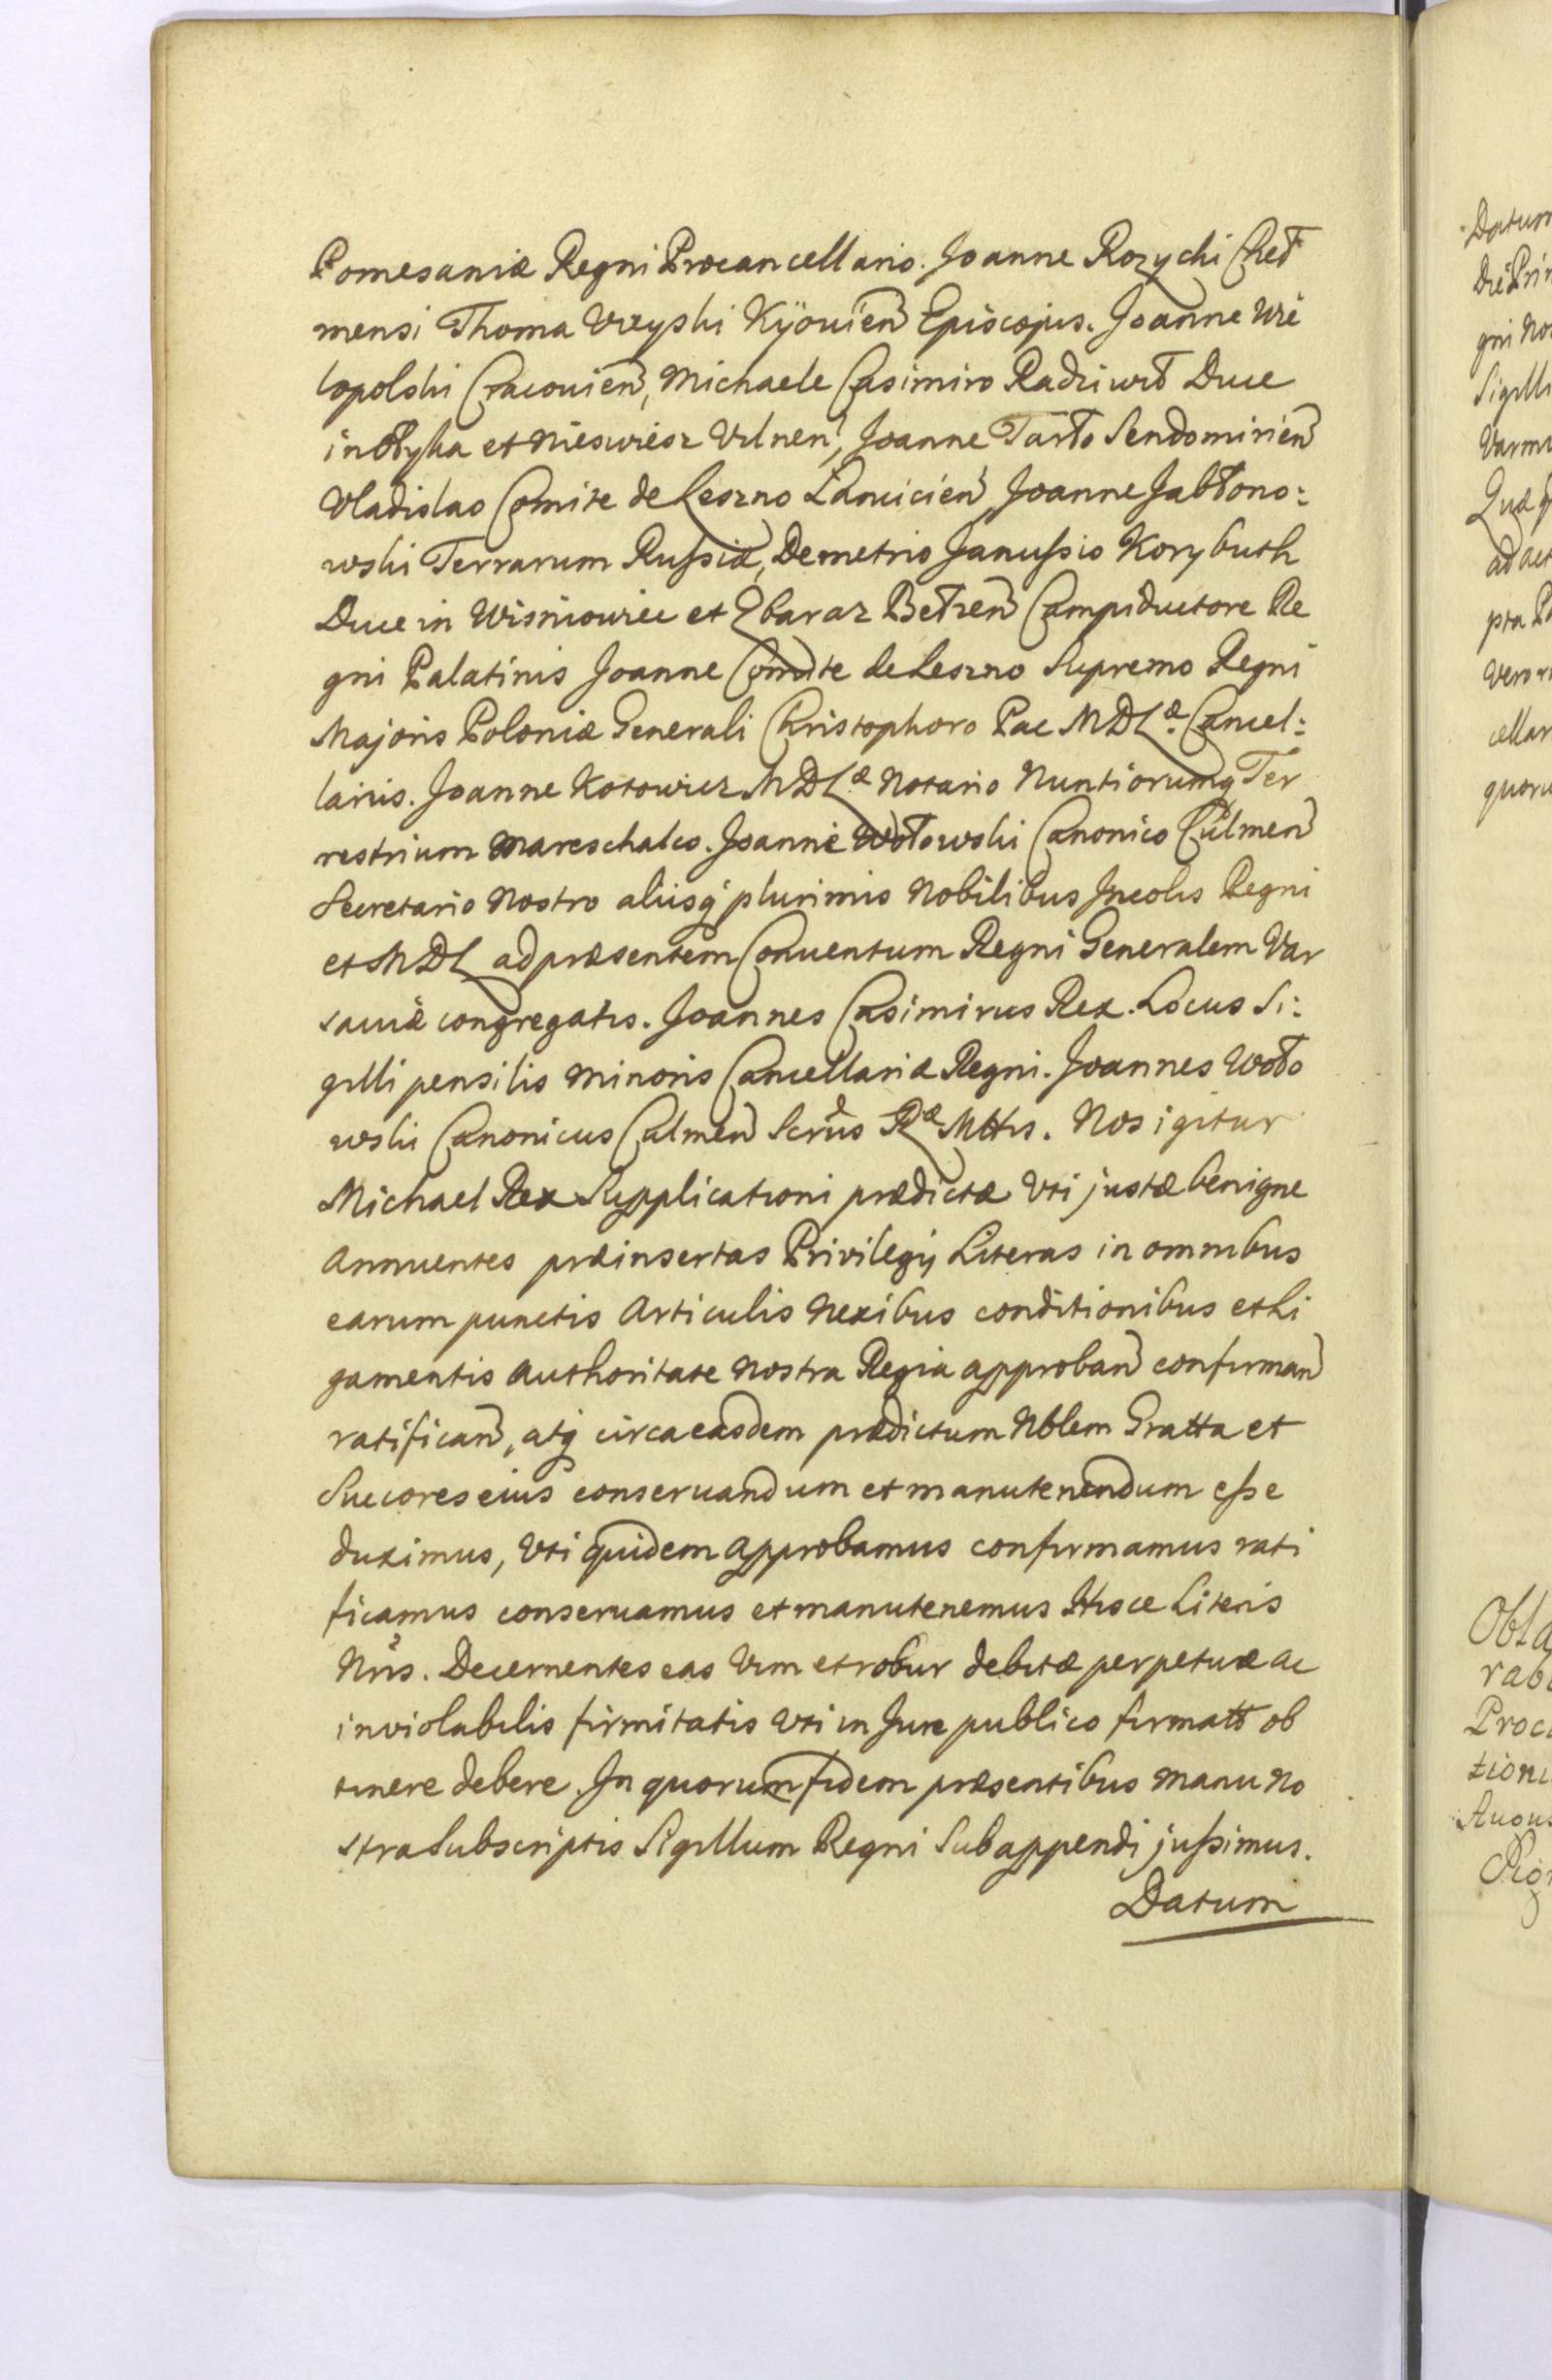 Pomesaniæ Regni Procancellario. Joanne Rozycki Cheł
mensi Thoma Uieyski Kÿouien̄ Episcopis. Joanne Wie
lopolski Cracouien̄, Michaele Casimiro Radziwił Duce
in Ołyka et Nieswiesz Vilnen̄, Joanne Tarło Sendomirien̄
Vladislao Comite de Leszno Lancicien̄ Joanne Jabłono:
wski Terrarum Russiæ, Demetrio Janussio Korybuth
Duce in Wisniowiec et Zbaraz Bełzen̄ Campiductore Re
gni Palatinis Joanne Comite de Leszno Supremo Regni
Majoris Poloniæ Generali Christophoro Pac MDLæ. Cancel:
lariis. Joanne Kotowicz MDLæ Notario Nuntiorumq Ter
restrium Mareschalco. Joanne Wołowski Canonico Culmen̄
Secretario Nostro aliisq plurimis Nobilibus Incolis Regni
et MDL ad præsentem Conuentum Regni Generalem Var
sauiæ congregatis. Joannes Casimirus Rex. Locus Si:
gilli pensilis minoris Cancellariæ Regni. Joannes Woło
wski Canonicus Culmen̄ Scrius Ræ Mttis. Nos igitur
Michael Rex Supplicationi prædictæ Vti justæ benigne
Annuentes præinsertas Privilegij Literas in omnibus
earum punctis Articulis Nexibus conditionibus et Li
gamentis Authoritate Nostra Regia approban̄ confirman̄
ratifican̄, atq circa easdem prædictum Nblem Gratta et
Succores eius conseruandum et manutenendum esse
duximus, Vti quidem approbamus confirmamus rati
ficamus conseruamus et manutenemus Hisce Literis
Nris. Decernentes eas Vim et robur debitæ perpetuæ ac
inviolabilis firmitatis Vti in Jure publico firmatt ob
tinere debere. In quorum fidem præsentibus manu No
stra Subscriptis Sigillum Regni Subappendi jussimus.
Datum